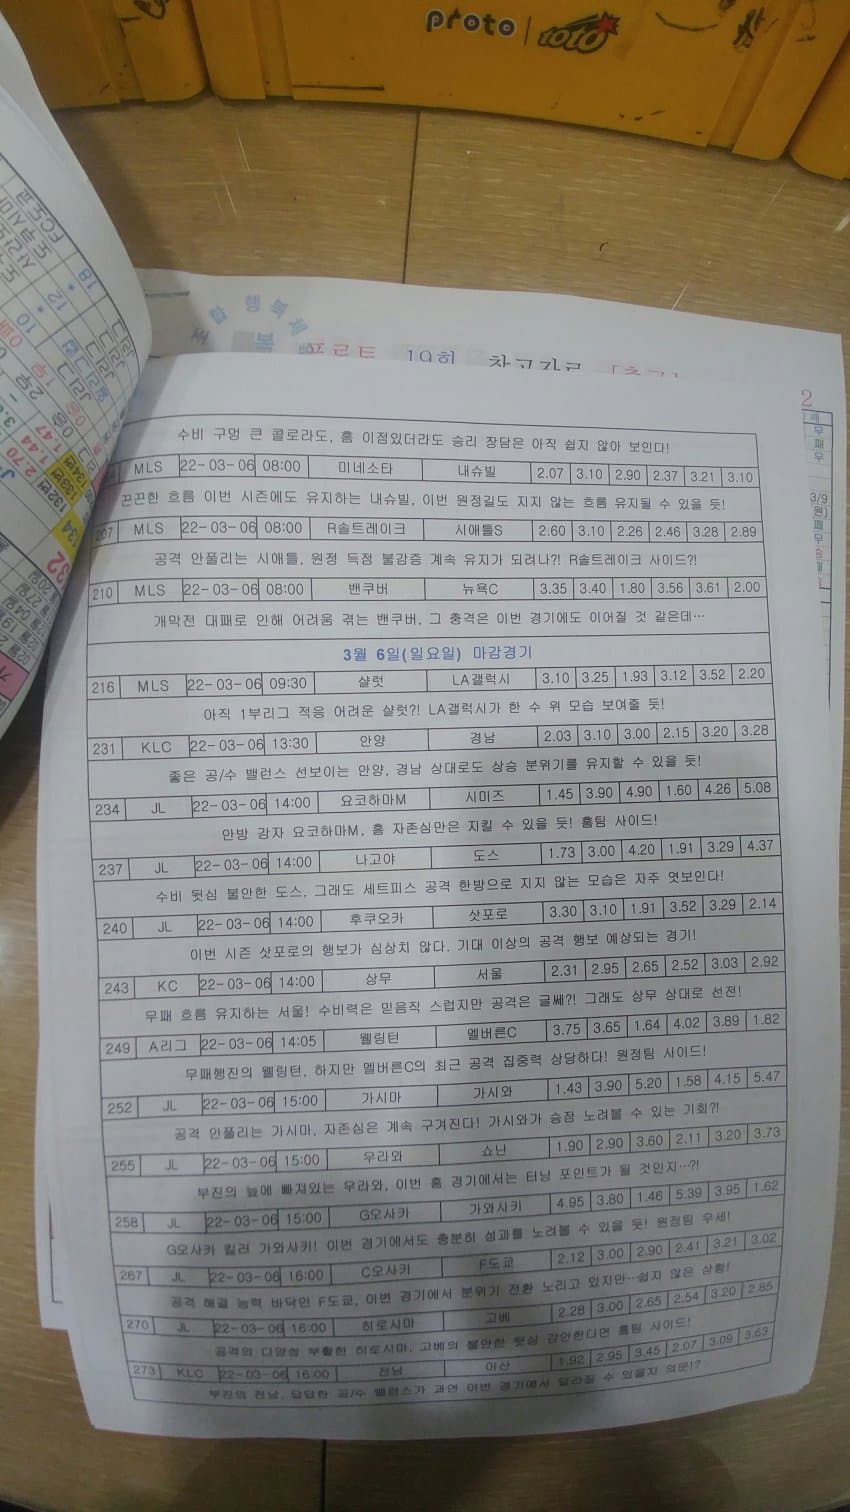 proto | toto
조합 행복체
복
프로토 19회 참고자료
2
수비 구멍 큰 콜로라도, 홈 이점있더라도 승리 장담은 아직 쉽지 않아 보인다!
MLS 22-03-06 08:00 미네소타 내슈빌 2.07 3.10 2.90 2.37 3.21 3.10
끈끈한 흐름 이번 시즌에도 유지하는 내슈빌, 이번 원정길도 지지 않는 흐름 유지될 수 있을 듯!
207 MLS 22-03-06 08:00 R솔트레이크 시애틀S 2.60 3.10 2.26 2.46 3.28 2.89
공격 안풀리는 시애틀, 원정 득점 불감증 계속 유지가 되려나?! R솔트레이크 사이드?!
210 MLS 22-03-06 08:00 밴쿠버 뉴욕C 3.35 3.40 1.80 3.56 3.61 2.00
개막전 대패로 인해 어려움 겪는 밴쿠버, 그 충격은 이번 경기에도 이어질 것 같은데…
3월 6일(일요일) 마감경기
216 MLS 22-03-06 09:30 샬럿 LA갤럭시 3.10 3.25 1.93 3.12 3.52 2.20
아직 1부리그 적응 어려운 샬럿?! LA갤럭시가 한 수 위 모습 보여줄 듯!
231 KLC 22-03-06 13:30 안양 경남 2.03 3.10 3.00 2.15 3.20 3.28
좋은 공/수 밸런스 선보이는 안양, 경남 상대로도 상승 분위기를 유지할 수 있을 듯!
234 JL 22-03-06 14:00 요코하마M 시미즈 1.45 3.90 4.90 1.60 4.26 5.08
안방 강자 요코하마M, 홈 자존심만은 지킬 수 있을 듯! 홈팀 사이드!
237 JL 22-03-06 14:00 나고야 도스 1.73 3.00 4.20 1.91 3.29 4.37
수비 뒷심 불안한 도스, 그래도 세트피스 공격 한방으로 지지 않는 모습은 자주 엿보인다!
240 JL 22-03-06 14:00 후쿠오카 삿포로 3.30 3.10 1.91 3.52 3.29 2.14
이번 시즌 삿포로의 행보가 심상치 않다. 기대 이상의 공격 행보 예상되는 경기!
243 KC 22-03-06 14:00 상무 서울 2.31 2.95 2.65 2.52 3.03 2.92
무패 흐름 유지하는 서울! 수비력은 믿음직 스럽지만 공격은 글쎄?! 그래도 상무 상대로 선전!
249 A리그 22-03-06 14:05 웰링턴 멜버른C 3.75 3.65 1.64 4.02 3.89 1.82
무패행진의 웰링턴, 하지만 멜버른C의 최근 공격 집중력 상당하다! 원정팀 사이드!
252 JL 22-03-06 15:00 가시마 가시와 1.43 3.90 5.20 1.58 4.15 5.47
공격 안풀리는 가시마, 자존심은 계속 구겨진다! 가시와가 승점 노려볼 수 있는 기회?!
255 JL 22-03-06 15:00 우라와 쇼난 1.90 2.90 3.60 2.11 3.20 3.73
부진의 늪에 빠져있는 우라와, 이번 홈 경기에서는 터닝 포인트가 될 것인지…?!
258 JL 22-03-06 15:00 G오사카 가와사키 4.95 3.80 1.46 5.39 3.95 1.62
G오사카 킬러 가와사키! 이번 경기에서도 충분히 성과를 노려볼 수 있을 듯! 원정팀 우세!
267 JL 22-03-06 16:00 C오사카 F도쿄 2.12 3.00 2.90 2.41 3.21 3.02
공격 해결 능력 바닥인 F도쿄, 이번 경기에서 분위기 전환 노리고 있지만…쉽지 않은 상황!
270 JL 22-03-06 16:00 히로시마 고베 2.28 3.00 2.65 2.54 3.20 2.85
공격의 다양성 부활한 히로시마, 고베의 불안한 뒷심 감안한다면 홈팀 사이드!
273 KLC 22-03-06 16:00 전남 아산 1.92 2.95 3.45 2.07 3.09 3.63
부진의 전남, 답답한 공/수 밸런스가 과연 이번 경기에서 달라질 수 있을지 의문!?